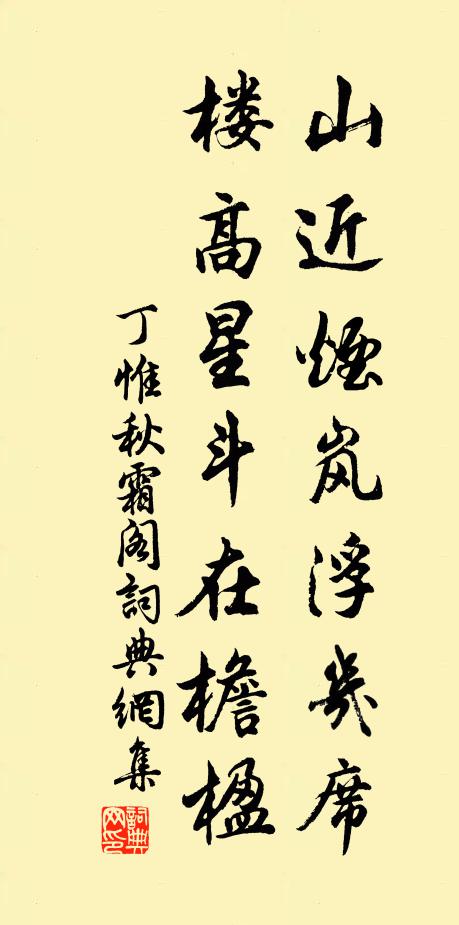 山近煙岚浮幾席
楼高星斗在檐楹
丁惟秋霜阁詞典網集
詞典网印